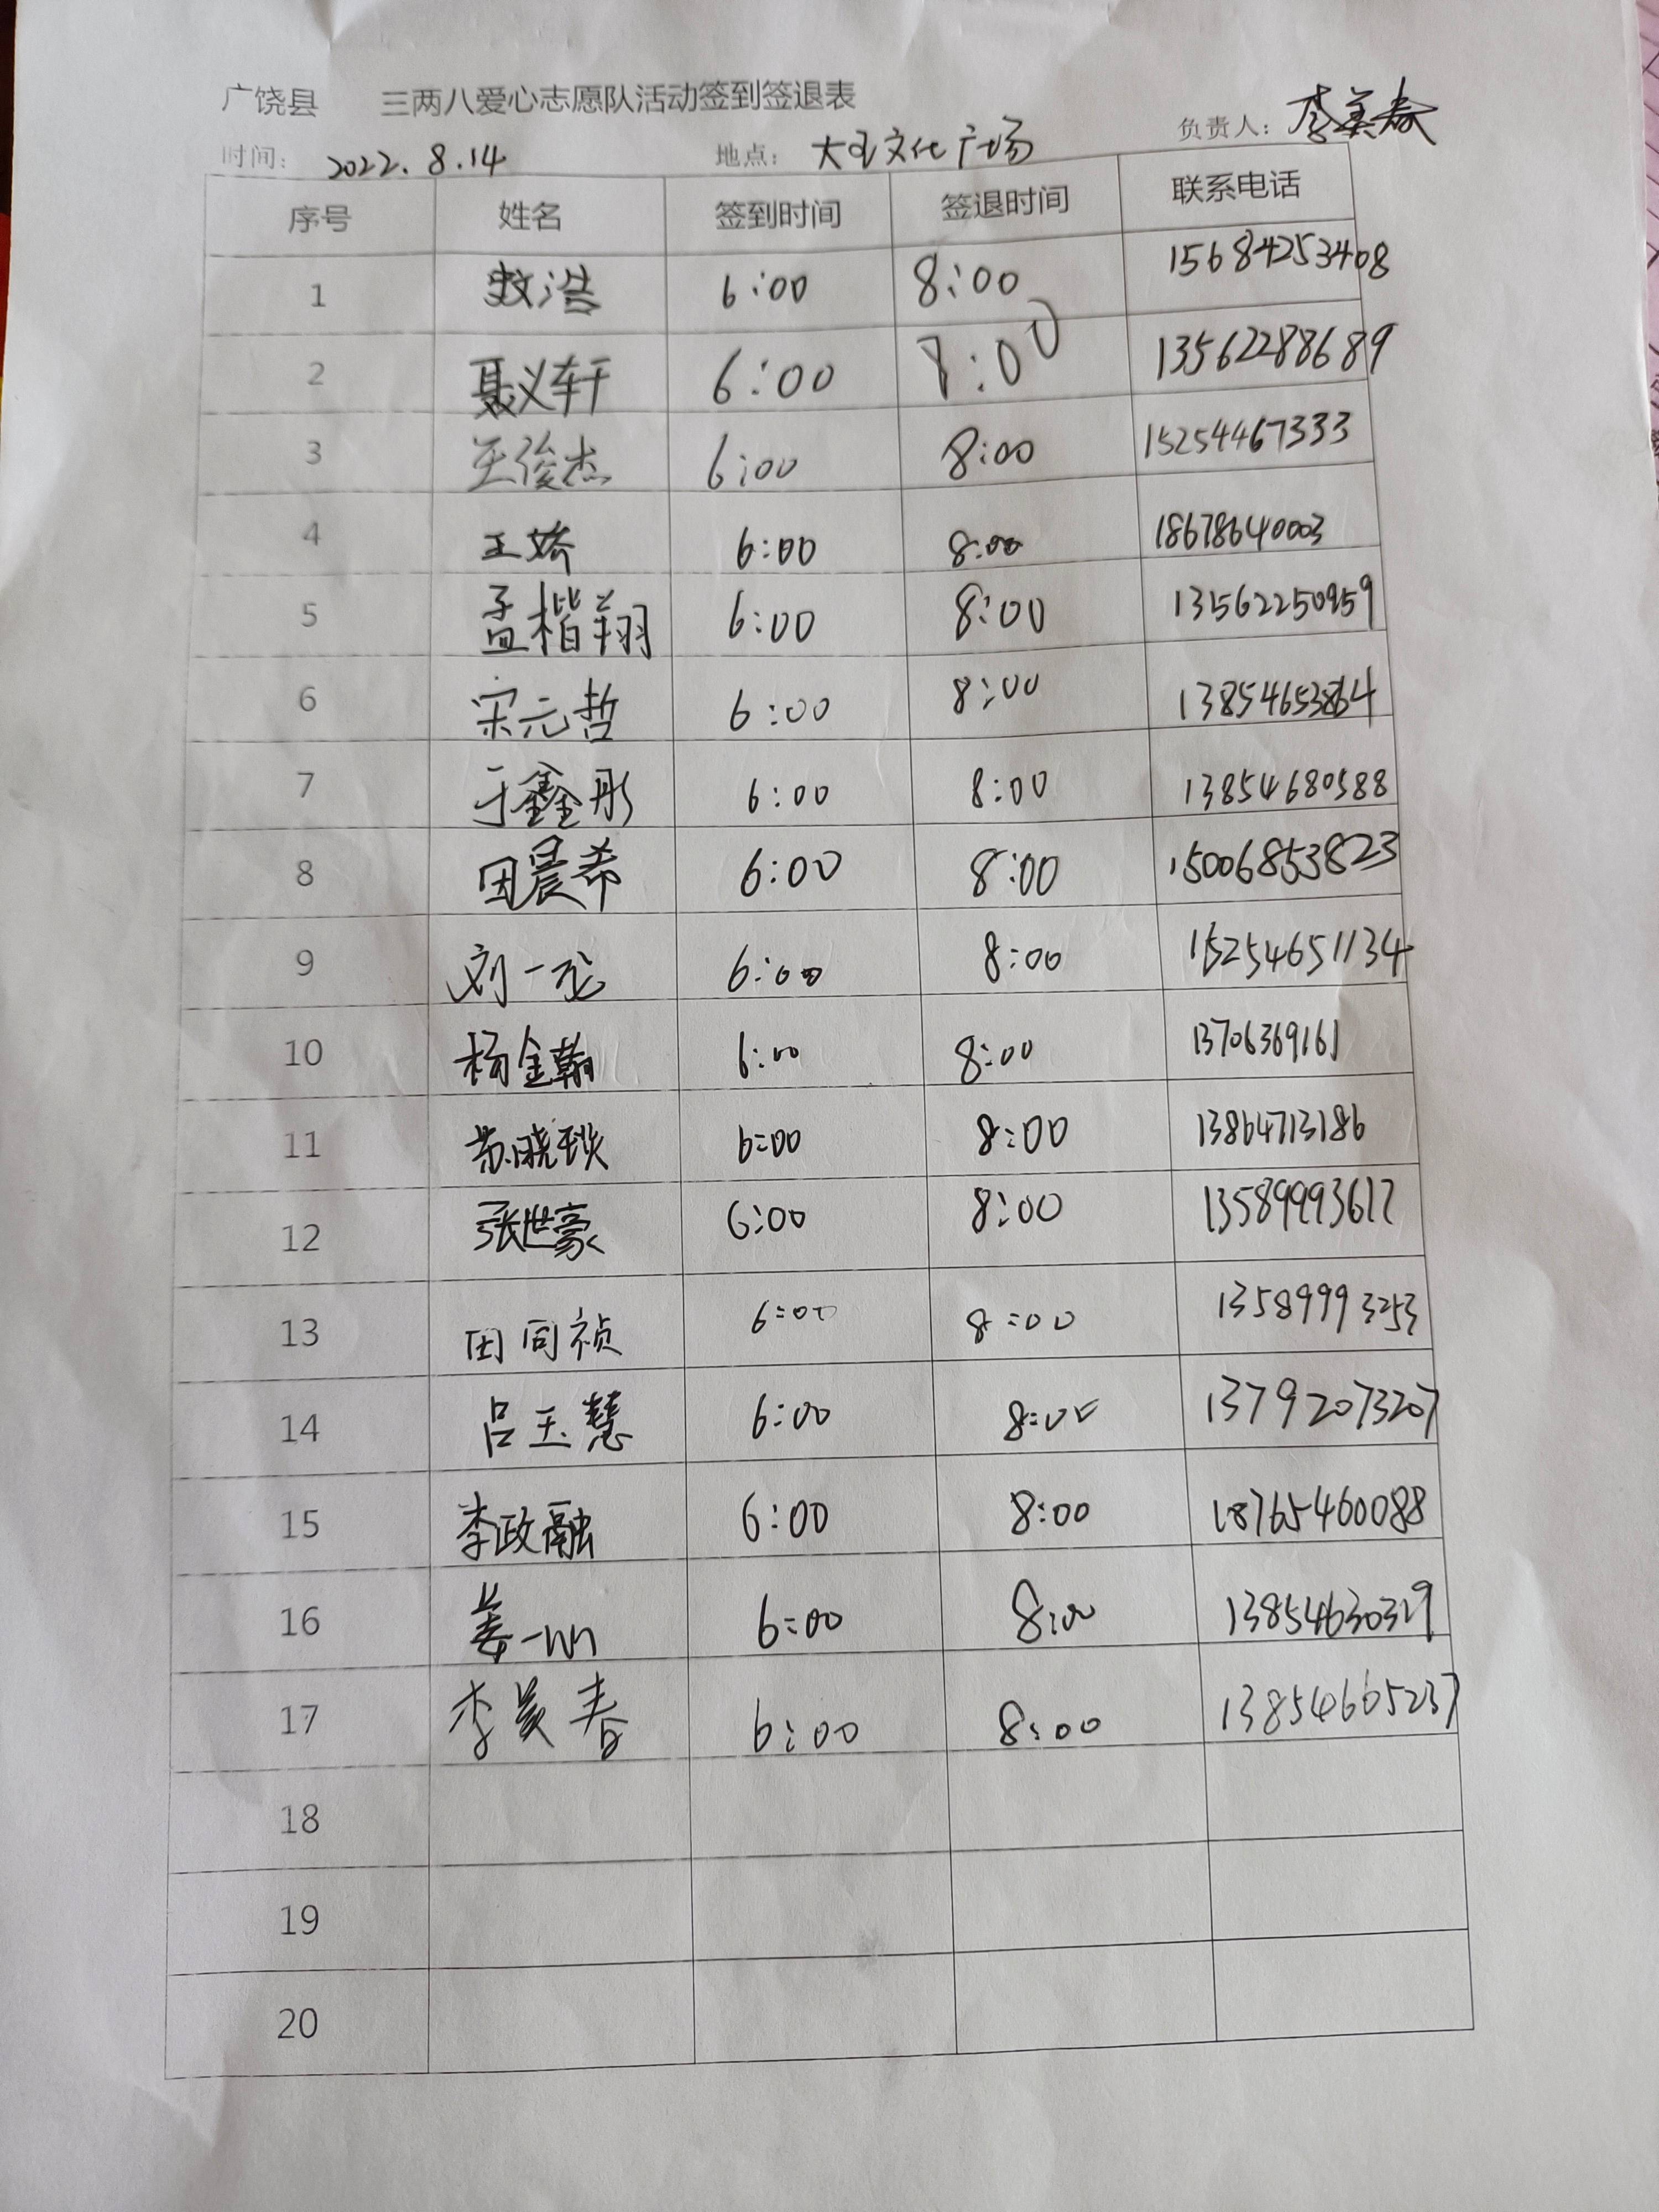 广饶县 三两八爱心志愿队活动签到签退表
时间： 2022.8.14 地点： 大王文化广场 负责人： 李美春
序号 姓名 签到时间 签退时间 联系电话
1 浩 6:00 8:00 15684253408
2 聂义轩 6:00 8:00 13562288689
3 王俊杰 6:00 8:00 15254467333
4 王娇 6:00 8:00 18678640003
5 孟楷翔 6:00 8:00 13562250959
6 宋元哲 6:00 8:00 13854653864
7 于鑫彤 6:00 8:00 13854680588
8 田晨希 6:00 8:00 15006853823
9 刘一 6:00 8:00 15254651134
10 杨金翰 6:00 8:00 13706369161
11 苏晓琰 6:00 8:00 13864713186
12 张世豪 6:00 8:00 13589993617
13 田同祯 6:00 8:00 13589993253
14 吕玉慧 6:00 8:00 13792073207
15 李政融 6:00 8:00 18765460088
16 姜一 6:00 8:00 13854630329
17 李美春 6:00 8:00 13854665237
18
19
20